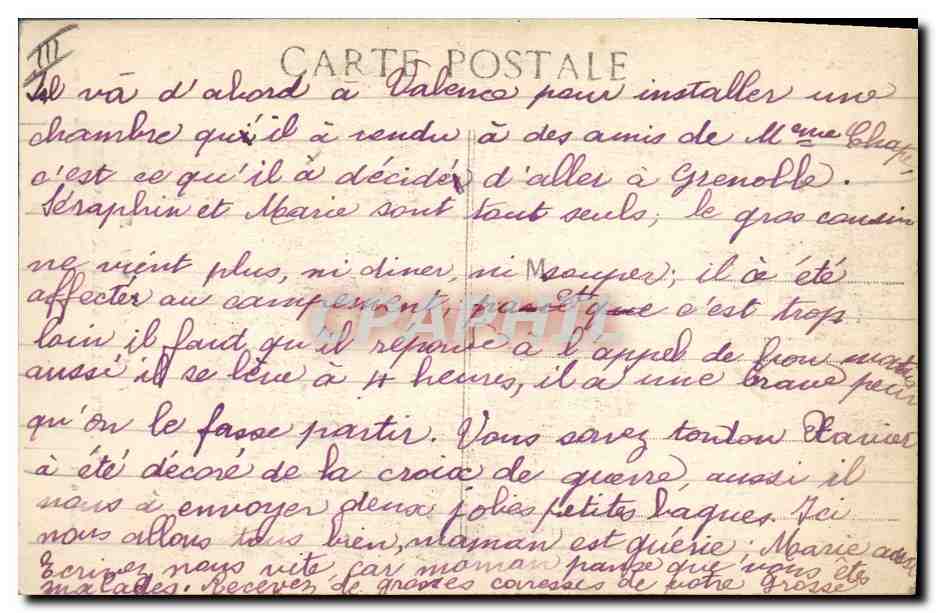 III
CARTE POSTALE
Il va d'abord à Valence pour installer une
chambre qu'il à vendu à des amis de Mme Chapé
c'est ce qu'il à décidé d'aller à Grenoble.
Séraphin et Marie sont tout seuls, le gros cousin
ne vient plus, ni diner, ni souper; il à été
affecter au campement, c'est trop
loin il faut qu'il réponde à l'appel de bon matin
aussi il se lève à 4 heures, il a une brave peur
qu'on le fasse partir. Vous savez tonton Xavier
à été décoré de la croix de guerre, aussi il
nous à envoyer deux jolies petites bagues. Ici
nous allons tous bien, maman est guérie; Marie aussi
Ecrivez nous vite car maman panse que vous êtes
malades. Recevez de grosses caresses de votre grosse
CPAPHIL